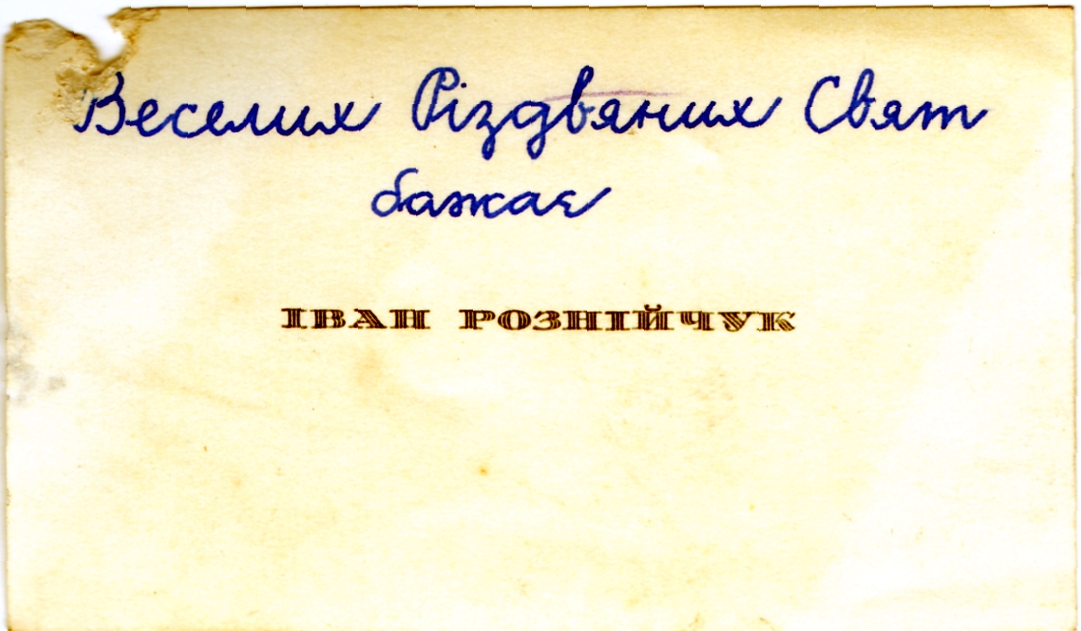 Веселих Різдвяних Свят
бажає
ІВАН РОЗНІЙЧУК